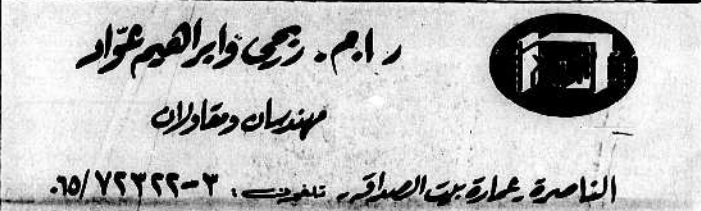 ر.ا.م. رزمي وابراهيم عوّاد
مهندسان ومقاولان
الناصرة عمارة بيت الصداقة تلفون: ٣-٧٢٣٢٢/٠٦٥